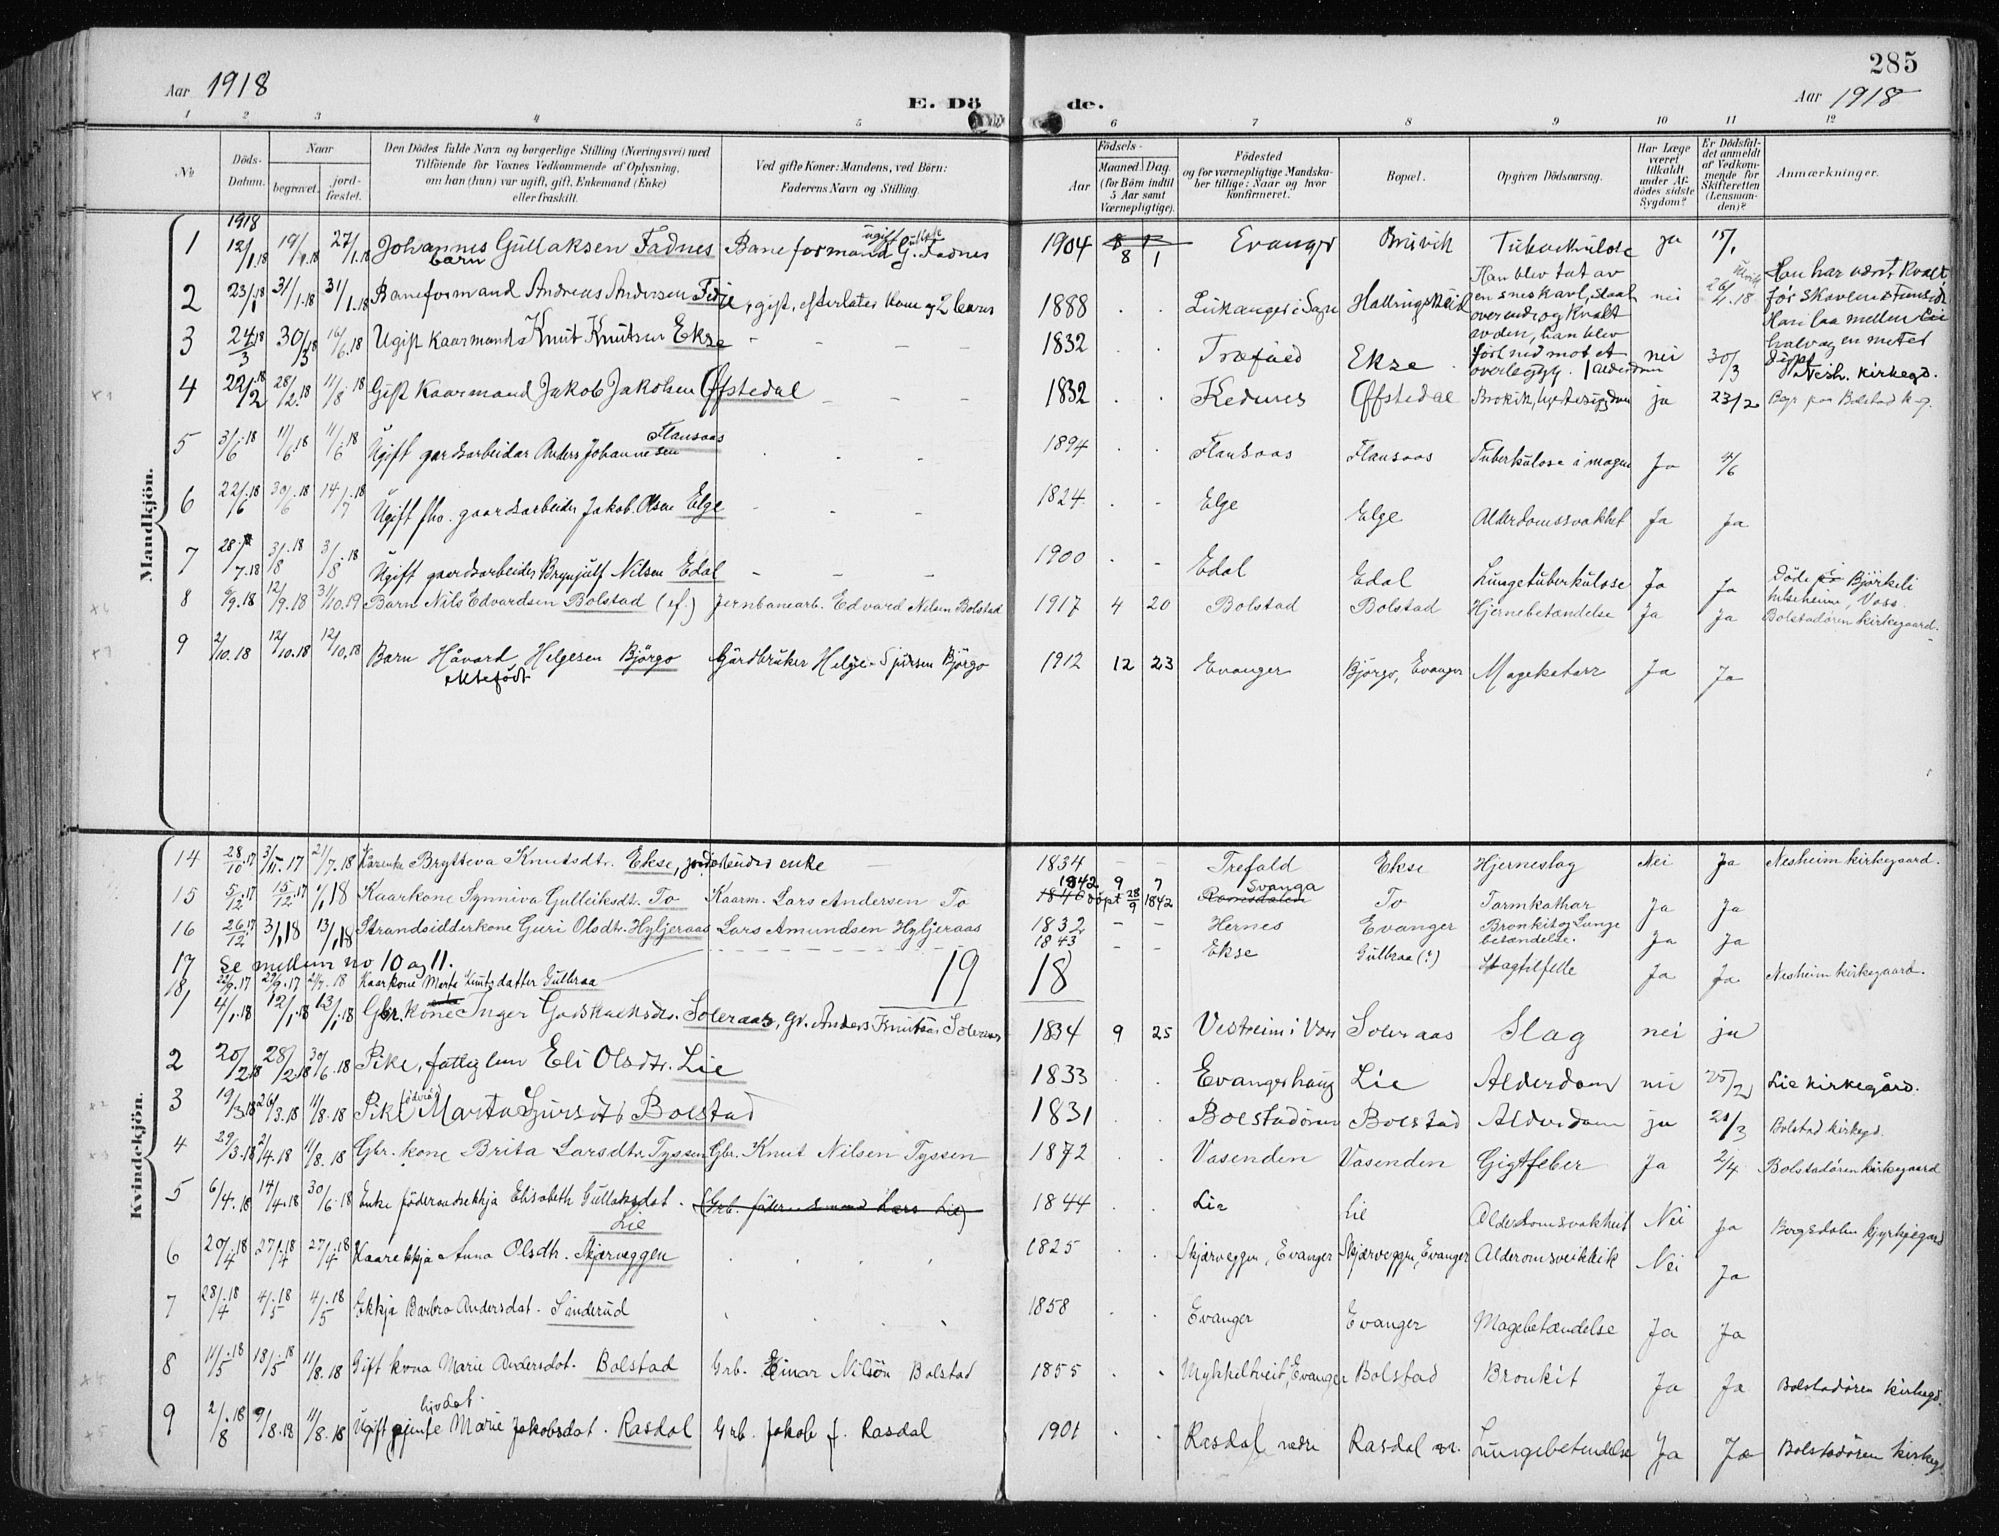 285
Aar 1918
E. Dö de.
Aar 1918
1 2 3 4 5 6 7 8 9 10 11 12
№
Döds-Datum.
Naar
begravet.
jord-fæstet.
Den Dödes fulde Navn og borgerlige Stilling (Næringsvei) med
Tilföiende for Voxnes Vedkommende af Oplysning,
om han (hun) var ugift, gift, Enkemand (Enke)
eller fraskilt.
Ved gifte Koner: Mandens, ved Börn:
Faderens Navn og Stilling.
Födsels-
Aar
Maaned Dag.
(for Börn indtil
5 Aar samt
Værnepligtige).
Födested
og for værnepligtige Mandska-
ber tillige: Naar og hvor
konfirmeret.
Bopæl.
Opgiven Dödsaarsag.
Har Læge
været
tilkaldt
under Af-
dödes sidste
Sygdom?
Er Dödsfal-
det anmeldt
af Vedkom-
mende for
Skifteretten
(Lensman-
den)?
Anmærkninger.
Mandkjön.
1918
1 12/1.18 19/1.18 27/1.18 Johannes Gullaksen Fadnes Baneformand G. Fadnes 1904 8 1 Evanger Bruvik Tuberkulose ja 15/1
barn
2 23/1.18 31/1.18 31/1.18 Baneformand Andreas Andersen Fedje, gift, efterlater kone og 2 barn 1888 . . Leikanger i Sogn Hallingskeid Han blev tat av en sneskavl, nei 26/1.18
overende og kvalt
av den, han blev
3 24/3.18 30/3.18 16/6.18 Ugift kaarmand Knut Knutsen Ekse - - - 1832 . . Træfald Ekse nei 30/3 Nesh. kirkegd.
4 22/2.18 28/2.18 11/8.18 Gift kaarmand Jakob Jakobsen Offstedal - - - 1832 . . Kednes Offstedal ja 23/2 Bgr paa Bolstad k.g.
5 3/6.18 11/6.18 11/6.18 Ugift gardsarbeidar Anders Johannesen Flausaas . - - 1894 . . Flausaas Flausaas Tuberkulose i magen Ja 4/6
6 22/6.18 30/6.18 14/7.18 Ugift fho. gaardsarbeider Jakob Olsen Elge - - - 1824 . - Elge Elge Alderdomssvakhet Ja Ja
7 28/7.18 3/8.18 3/8.18 Ugift gaardsarbeider Brynjulf Nilsen Edal - - - 1900 . - Edal Edal Lungetuberkulose Ja Ja Döde i Björkeli
helseheim, Voss.
8 6/9.18 12/9.18 31/10.19 Barn Nils Edvardsen Bolstad (ef.) Jernbanearb. Edvard Nilsen Bolstad 1917 4 20 Bolstad Bolstad Hjernebetændelse Ja Ja Bolstadören kirkegaard.
9 2/10.18 12/10.18 12/10.18 Barn Håvard Helgesen Björgo Gårdbruker Helge Sjursen Björgo 1912 12 23 Evanger Björgo, Evanger Magekatarr Ja Ja
ektefödt
14 28/10.17 3/11.17 21/7.18 Kårenke Brytteva Knutsdtr. Ekse, enke 1834 - - Trefald Ekse Hjerneslag Nei Ja Nesheim kirkegaard.
15 5/12.17 15/12.17 1/1.18 Kaarkone Synniva Gulleiksdt. To Kaarm. Lars Andersen To 1846 1842 9 7 döpt 28/9 1842 Romsdalen Svanga To Tarmkathar Ja Ja
16 26/12.17 3/1.18 13/1.18 Strandsidderkone Guri Olsdtr. Hyljeraas Lars Amundsen Hyljeraas 1832 - - Hernes Evanger Bronkit og Lunge
betændelse. Ja Ja
17 Se mellem no 10 og 11. 19 18
18 22/9.17 29/9.17 21/7.18 Kaarkone Marta Knutsdatter Gullbraa 1843 - - Ekse Gulbraa (?) Slagtilfelle Ja Ja Nesheim kirkegaard.
Kvindekjön.
1 4/1.18 12/1.18 13/1.18 Gbr. kone Inger Godskalksdtr. Soleraas, Gr. Anders Knutsen Soleraas 1834 9 25 Vestreim i Voss Soleraas Slag nei ja
2 20/2.18 28/2.18 30/6.18 Pike, fattiglem Eli Olsdtr. Lie 1833 . . Evangerhaug Lie Alderdom nei 25/2 Lie kirkegård.
3 19/3.18 26/3.18 11/8.18 Pike Marta Sjursdtr Bolstad 1831 . . Bolstadören Bolstad Alderdom ja 21/3 Bolstad kirkegd.
4 29/3.18 2/4.18 11/8.18 Gbr. kone Brita Larsdtr. Tyssen Gbr. Knut Nilsen Tyssen 1872 . . Vasenden Vasenden Gigtfeber Ja 2/4 Bolstadören kirkegaard
5 6/4.18 14/4.18 30/6.18 Enke föderaadsekkja Elisabeth Gullaksdot. Lie 1844 . . Lie Lie Alderdomsvakhet Nei Ja Bergsdalen kyrkjegard
6 20/4.18 27/4.18 27/4.18 Kaarekkja Anna Olsdtr. Skjærveggen 1825 . . Skjærveggen, Evanger Skjærveggen, Evanger Alderomsveikleik Nei Ja
7 28/4.18 4/5.18 4/5.18 Ekkja Barbro Andersdot. Sönderud 1858 . . Evanger Evanger Magebetændelse Ja Ja
8 11/5.18 18/5.18 11/8.18 Gift kona Marie Andersdot. Bolstad Grb. Einar Nilsön Bolstad 1855 . . Mykkeltveit, Evanger Bolstad Bronkit Ja Ja Bolstadören kirkegd.
9 2/8.18 9/8.18 11/8.18 Ugift gjente Marie Jakobsdot. Rasdal Grb. Jakob J. Rasdal 1901 . . Rasdal nedre Rasdal nr. Lungebetendelse Ja Ja Bolstadören kirkegd